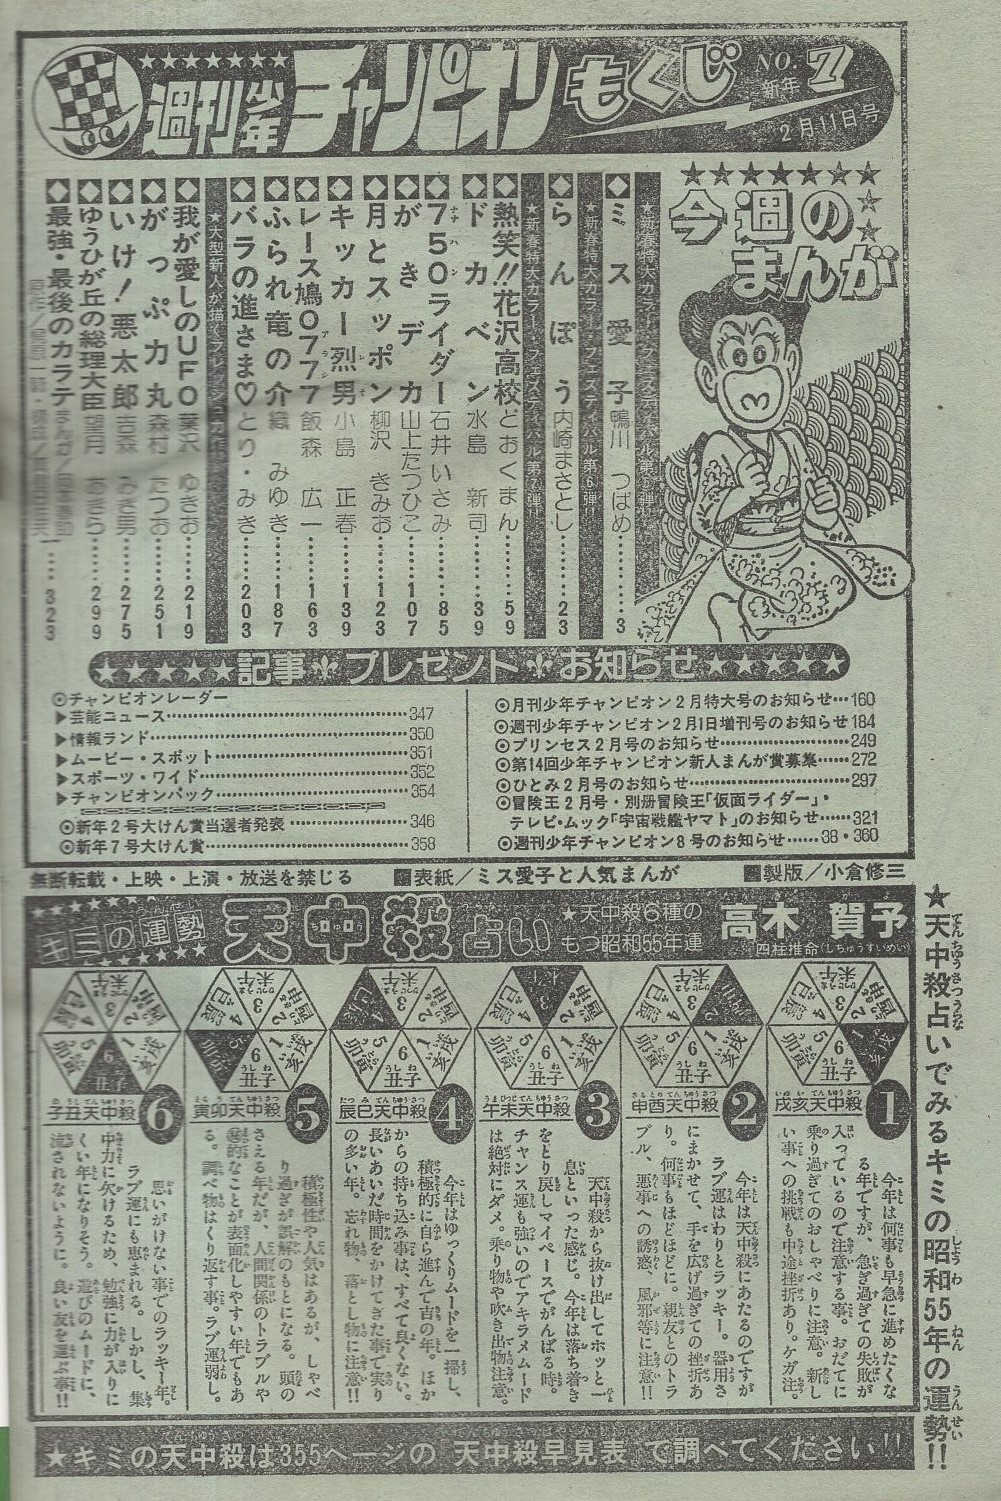 週刊少年チャンピオンもくじ
NO.7
新年
2月11日号
今週の
まんが
★新春特大カラー・フェスティバル第5弾
ミス愛子 鴨川 つばめ……3
★新春特大カラー・フェスティバル第6弾
らんぽう 内崎まさとし……23
★新春特大カラー・フェスティバル第7弾
熱笑!!花沢高校 どおくまん……59
ドカベン 水島 新司……39
750ライダー 石井いさみ……85
がきデカ 山上たつひこ……107
月とスッポン 柳沢 きみお……123
キッカー烈男 小島 正春……139
レース鳩0777 飯森 広一……163
ふられ竜の介 織 みゆき……187
バラの進さま♡ とり・みき……203
★大型新人が描く
我が愛しのUFO 葉沢 ゆきお……219
がっぷ力丸 森村 たつお……251
いけ!悪太郎 吉森 みき男……275
ゆうひが丘の総理大臣 望月 あきら……299
最強・最後のカラテ……323
記事 プレゼント お知らせ
◎チャンピオンレーダー
▶芸能ニュース……347
▶情報ランド……350
▶ムービー・スポット……351
▶スポーツ・ワイド……352
▶チャンピオンパック……354
◎新年2号大けん賞当選者発表……346
◎新年7号大けん賞……358
◎月刊少年チャンピオン2月特大号のお知らせ…160
◎週刊少年チャンピオン2月1日増刊号のお知らせ 184
◎プリンセス2月号のお知らせ……249
◎第14回少年チャンピオン新人まんが賞募集……272
◎ひとみ2月号のお知らせ……297
◎冒険王2月号・別冊冒険王「仮面ライダー」・
テレビ・ムック「宇宙戦艦ヤマト」のお知らせ……321
◎週刊少年チャンピオン8号のお知らせ……38・360
無断転載・上映・上演・放送を禁じる
表紙/ミス愛子と人気まんが
製版/小倉修三
★天中殺占いでみるキミの昭和55年の運勢!!
キミの運勢
天中殺占い
★天中殺6種の
もつ昭和55年運
高木 賀予
四柱推命(しちゅうすいめい)
1
戌亥天中殺
今年は何事も早急に進めたくな
る年ですが、急ぎ過ぎての失敗が
入っているので注意する事。おだてに
乗り過ぎてのおしゃべりに注意。新し
い事への挑戦も中途挫折あり。ケガ注。
2
申酉天中殺
今年は天中殺にあたるのですが
ラブ運はわりとラッキー。器用さ
にまかせて、手を広げ過ぎての挫折あ
り。何事もほどほどに。親友とのトラ
ブル、悪事への誘惑、風邪等に注意!!
3
午未天中殺
天中殺から抜け出してホッと一
息といった感じ。今年は落ち着き
をとり戻しマイペースでがんばる時。
チャンス運も強いのでアキラメムード
は絶対にダメ。乗り物や吹き出物注意。
4
辰巳天中殺
今年はゆっくりムードを一掃し、
積極的に自ら進んで吉の年。ほか
からの持ち込み事は、すべて良くない。
長いあいだ時間をかけてきた事で実り
の多い年。忘れ物、落とし物に注意!!
5
寅卯天中殺
積極性や人気はあるが、しゃべ
り過ぎが誤解のもとになる。頭の
さえる年だが、人間関係のトラブルや
㊙的なことが表面化しやすい年でもあ
る。調べ物はくり返す事。ラブ運弱し。
6
子丑天中殺
思いがけない事でのラッキー年。
ラブ運にも恵まれる。しかし、集
中力に欠けるため、勉強に力が入りに
くい年になりそう。遊びのムードに、
流されないように。良い友を選ぶ事!!
★キミの天中殺は355ページの"天中殺早見表"で調べてください!!